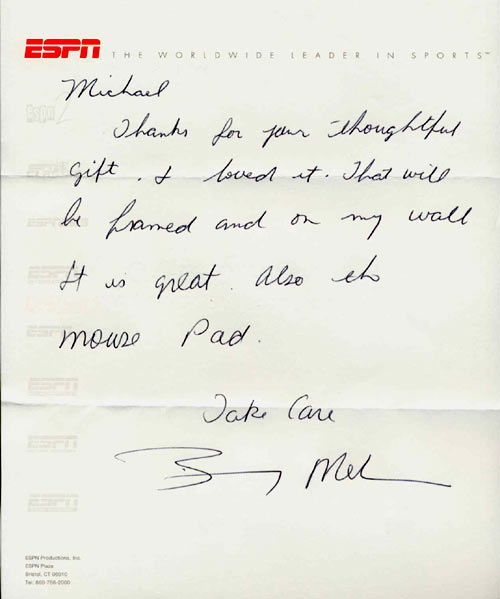 ESPN THE WORLDWIDE LEADER IN SPORTS
Michael
Thanks for your thoughtful
gift. I loved it. That will
be framed and on my wall
It is great. Also the
mouse Pad.
Take Care
ESPN Productions, Inc.
ESPN Plaza
Bristol, CT 06010
Tel. 860-766-2000